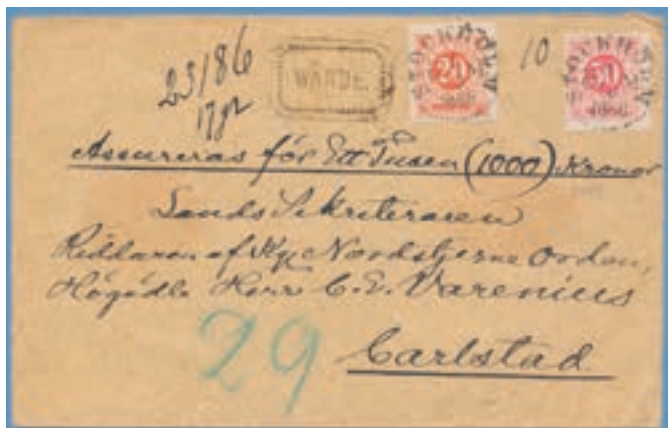 23/86
1782
WÄRDE.
STOCKHOLM
20
10
STOCKHOLM
50
Assureras för Ett Tusen (1000) Kronor
Lands Sekriteraren
Riddaren af Kgl Nordstjerne Orden,
Högädle Herr C. E. Varenius
Carlstad
29